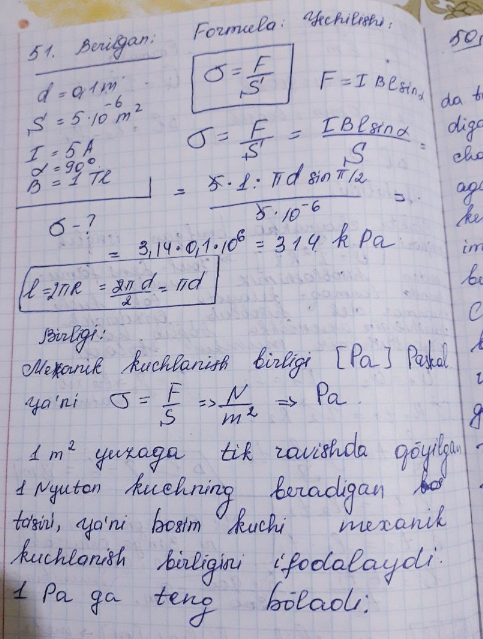 51. Berilgan: Formula: Yechilishi:
d = 0,1 m
S = 5·10⁻⁶ m²
I = 5 A
α = 90°
B = 1 Tl
σ - ?
σ = F/S F = I B l sinα
σ = F/S = IBl sinα/S =
= 5·1·πd sin π/2 / 5·10⁻⁶ =
= 3,14·0,1·10⁶ = 314 kPa
l = 2πR = 2π/2 d = πd
Birligi:
Mexanik kuchlanish birligi [Pa] Paskal
ya'ni σ = F/S => N/m² => Pa
1 m² yuzaga tik ravishda qo'yilgan
1 Nyuton kuchning beradigan
ta'siri, ya'ni bosim kuchi mexanik
kuchlanish birligini ifodalaydi.
1 Pa ga teng bo'ladi.
50,
da
diga
cha
aga
ke
im